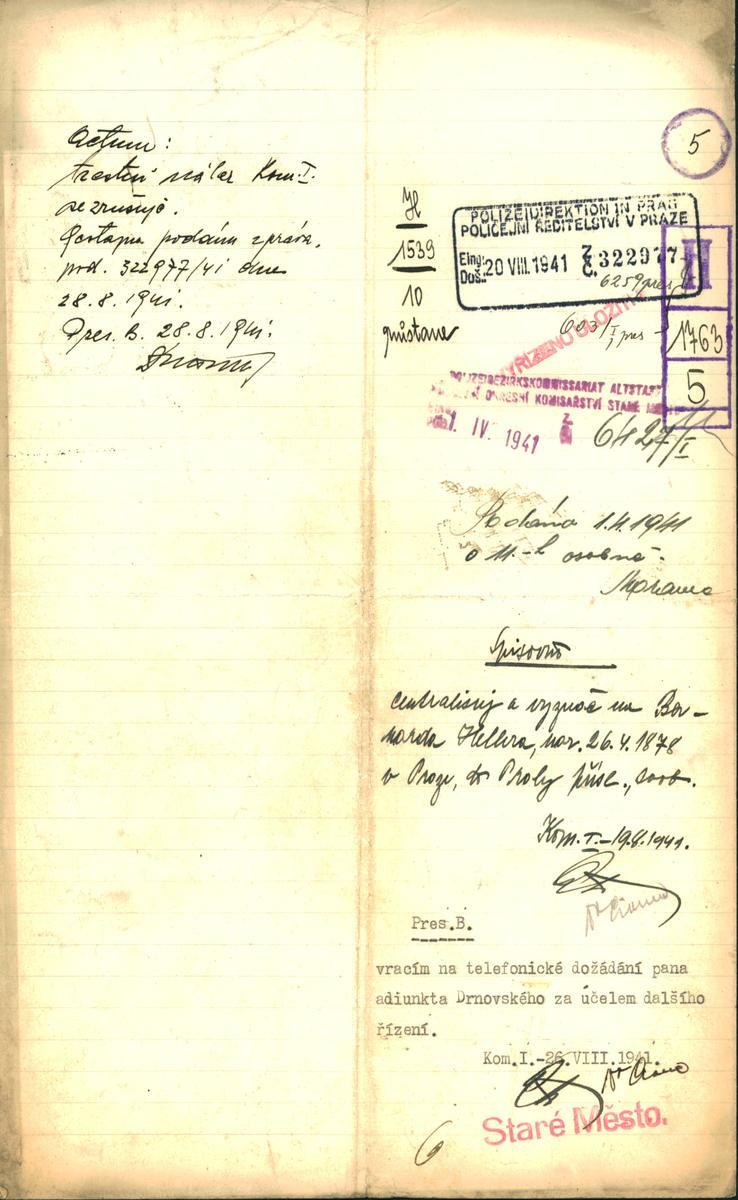 Actum:
trestní nález Kom.I.
se zrušuje.
Gestapu podána zpráva.
pod. 322977/41 dne
28.8.1941.
Pres. B. 28.8.1941.
5
H
1539
10
zůstane
POLIZEIDIREKTION IN PRAG
POLICEJNÍ ŘEDITELSTVÍ V PRAZE
Eing.: Doš.: 20 VIII. 1941 Z. Č. 322977
6259 pres
603/I pres
VYŘÍZENO ULOŽIT
II
1763
5
POLIZEIBEZIRKSKOMMISSARIAT ALTSTADT
OKRESNÍ KOMISAŘSTVÍ STARÉ
1. IV. 1941
6427/I
Dodáno 1.4.1941
o 11.-h osobně.
Spisovně
centralisuj a vyznač na Ber-
narda Hellera, nar. 26.4.1878
v Praze, do Prahy přísl.,
Kom.I.-19.8.1941.
Pres.B.
vracím na telefonické dožádání pana
adiunkta Drnovského za účelem dalšího
řízení.
Kom.I.-26.VIII.1941.
Staré Město.
6